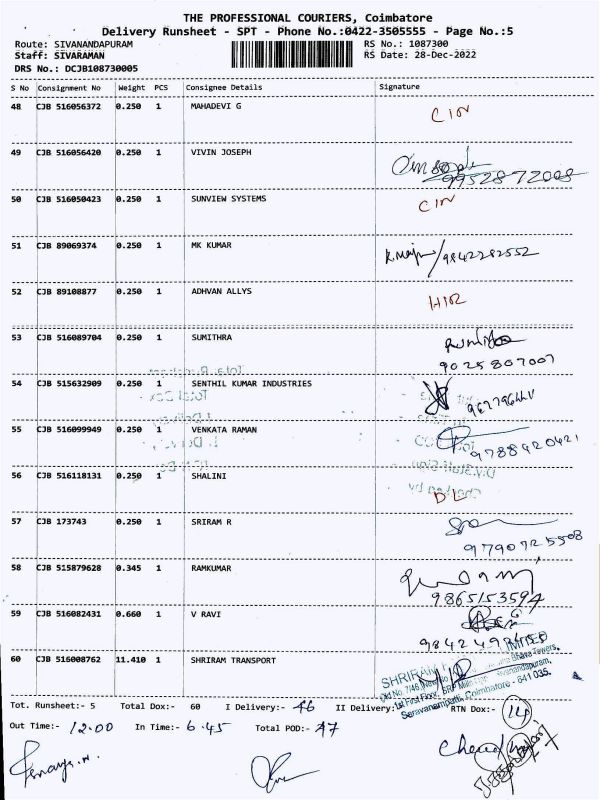 THE PROFESSIONAL COURIERS, Coimbatore
Delivery Runsheet - SPT - Phone No.:0422-3505555 - Page No.:5
Route: SIVANANDAPURAM RS No.: 1087300
Staff: SIVARAMAN RS Date: 28-Dec-2022
DRS No.: DCJB108730005
S No Consignment No Weight PCS Consignee Details Signature
48 CJB 516056372 0.250 1 MAHADEVI G
49 CJB 516056420 0.250 1 VIVIN JOSEPH
9952872008
50 CJB 516050423 0.250 1 SUNVIEW SYSTEMS
51 CJB 89069374 0.250 1 MK KUMAR
/9842282552
52 CJB 89108877 0.250 1 ADHVAN ALLYS
53 CJB 516089704 0.250 1 SUMITHRA
9025807007
54 CJB 515632909 0.250 1 SENTHIL KUMAR INDUSTRIES
55 CJB 516099949 0.250 1 VENKATA RAMAN
9788920421
56 CJB 516118131 0.250 1 SHALINI
DL
57 CJB 173743 0.250 1 SRIRAM R
9790725508
58 CJB 515879628 0.345 1 RAMKUMAR
9865153594
59 CJB 516082431 0.660 1 V RAVI
60 CJB 516008762 11.410 1 SHRIRAM TRANSPORT
SHRIRAM
1st First Floor, Sivanandapuram,
Saravanampatti, Coimbatore - 641 035.
Tot. Runsheet:- 5 Total Dox:- 60 I Delivery:- 46 II Delivery:- RTN Dox:- 14
Out Time:- 12.00 In Time:- 6.45 Total POD:- 47